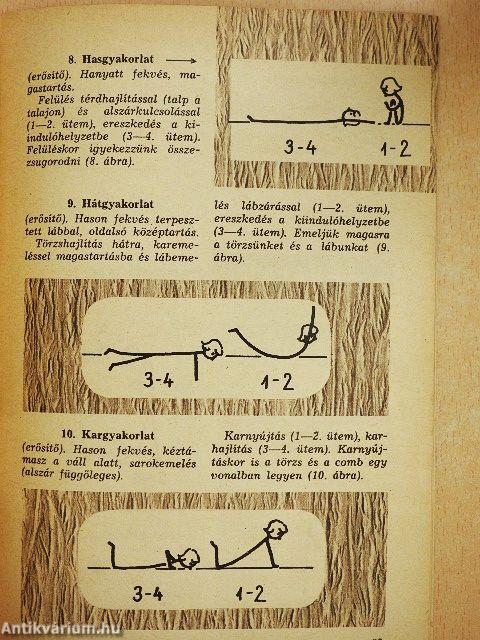 8. Hasgyakorlat
(erősítő). Hanyatt fekvés, ma-
gastartás.
Felülés térdhajlítással (talp a
talajon) és alszárkulcsolással
(1—2. ütem), ereszkedés a ki-
indulóhelyzetbe (3—4. ütem).
Felüléskor igyekezzünk össze-
zsugorodni (8. ábra).
3-4 1-2
9. Hátgyakorlat
(erősítő). Hason fekvés terpesz-
tett lábbal, oldalsó középtartás.
Törzshajlítás hátra, kareme-
léssel magastartásba és lábeme-
lés lábzárással (1—2. ütem),
ereszkedés a kiindulóhelyzetbe
(3—4. ütem). Emeljük magasra
a törzsünket és a lábunkat (9.
ábra).
3-4 1-2
10. Kargyakorlat
(erősítő). Hason fekvés, kéztá-
masz a váll alatt, sarokemelés
(alszár függőleges).
Karnyújtás (1—2. ütem), kar-
hajlítás (3—4. ütem). Karnyúj-
táskor is a törzs és a comb egy
vonalban legyen (10. ábra).
3-4 1-2
Antikvárium.hu